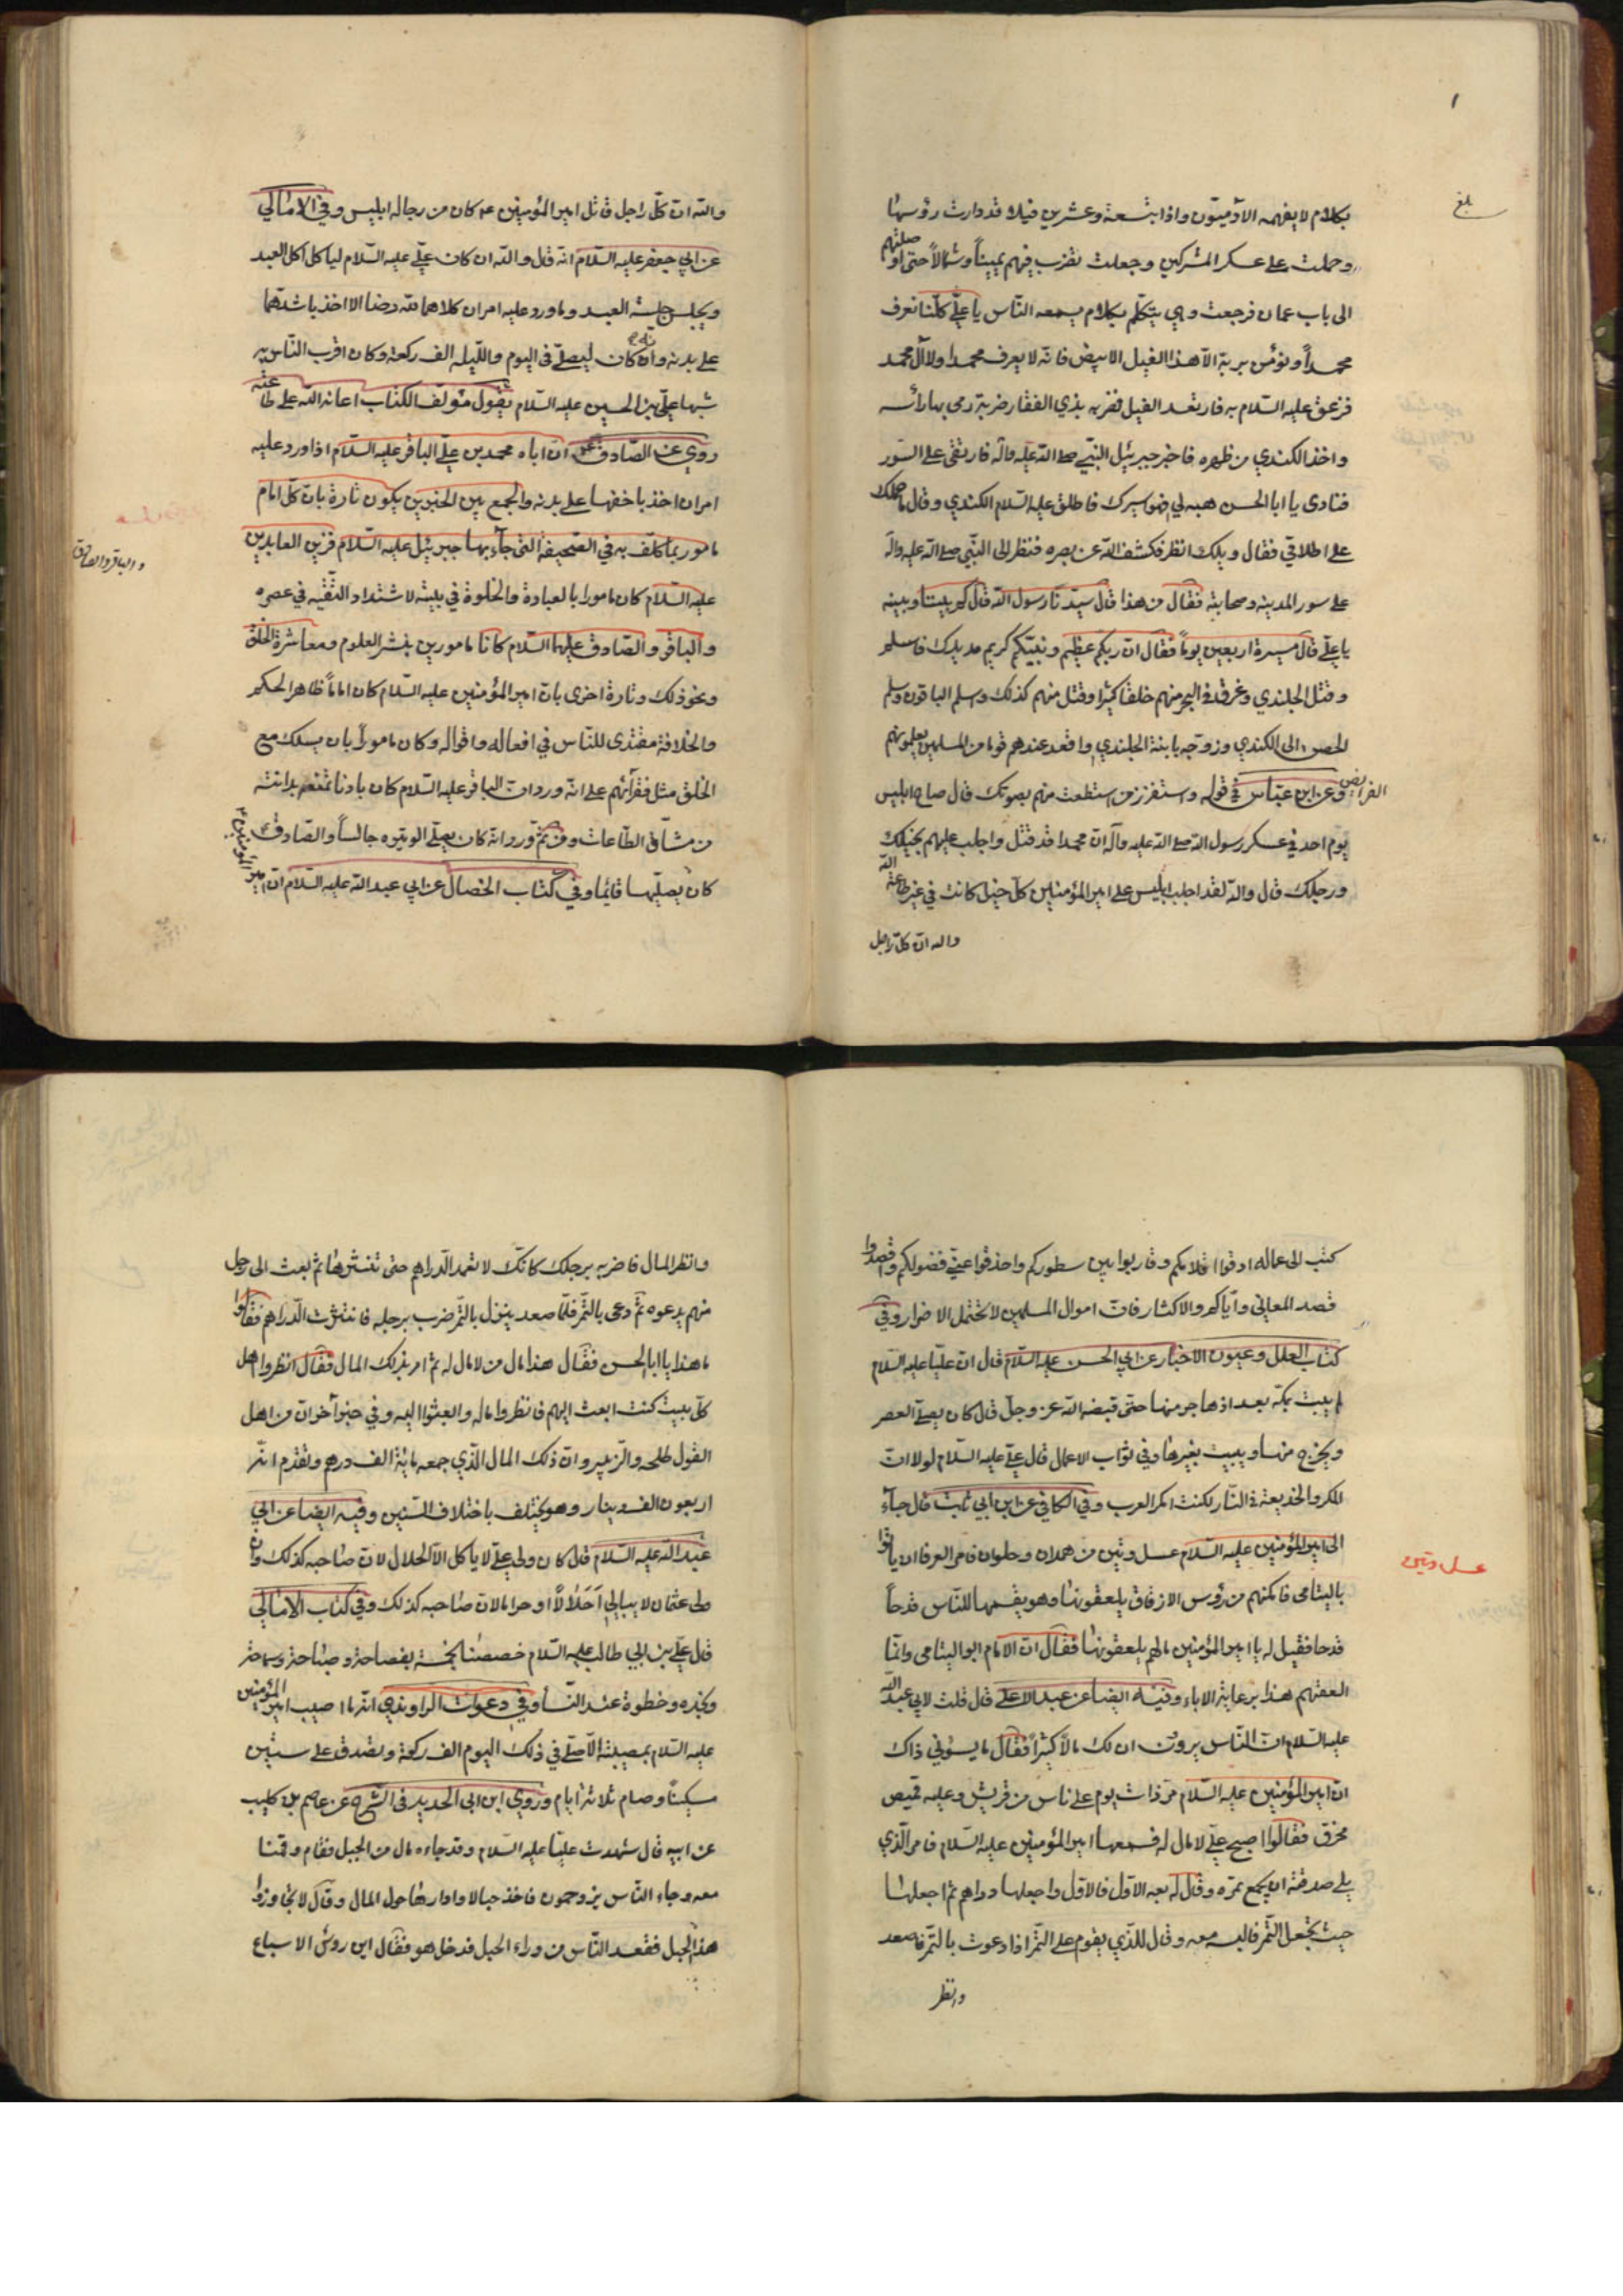 بلغ
بكلام لا يفهمه الآدميّون واذا بتسعة وعشرين فيلا قد دارت رؤسها
وحملت على عسكر المشركين وجعلت تضرب فيهم يميناً وشمالاً حتى اوصلتهم
الى باب عمان فرجعت وهي يتكلّم بكلام يسمعه النّاس يا عليّ كلّنا نعرف
محمداً ونؤمن بربه الّا هذا الفيل الابيض فانّه لا يعرف محمدا ولا آل محمد
فزعق عليه السّلام به فارتعد الفيل فضربه بذي الفقار ضربة رمى بها رأسه
واخذ الكندي من ظهره فاخبر جبرئيل النبيّ صلى الله عليه وآله فارتقى على السّور
فنادى يا ابا الحسن هبه لي فهو اسيرك فاطلق عليه السّلام الكندي وقال ما حملك
على اطلاقي فقال ويلك انظر فكشف الله عن بصره فنظر الى النّبي صلى الله عليه وآله
على سور المدينه وصحابته فقال من هذا قال سيّدنا رسول الله قال كم بيننا وبينه
يا عليّ قال مسيرة اربعين يوماً فقال انّ ربكم عظيم ونبيّكم كريم مد يدك فاسلم
وقتل الجلندي وغرق في البحر منهم خلقا كثيرا وقتل منهم كذلك وسلم الباقون وسلم
الحصن الى الكندي وزوّجه بابنة الجلندي واقعد عندهم قوما من المسلمين يعلمونهم
الفرايض وعن ابن عبّاس في قوله واستفزز من استطعت منهم بصوتك قال صاح ابليس
يوم احد في عسكر رسول الله صلى الله عليه وآله انّ محمدا قد قتل واجلب عليهم بخيلك
ورجلك قال والله لقد اجلب ابليس على امير المؤمنين كلّ خيل كانت في غير طاعة الله
والله انّ كلّ راجل
والله انّ كلّ راجل قاتل امير المؤمنين ع كان من رجاله ابليس وفي الامالي
عن ابي جعفر عليه السّلام انّه قال والله ان كان عليّ عليه السّلام لياكل اكل العبد
ويجلس جلسة العبد وما ورد عليه امران كلاهما لله رضا الا اخذ باشدّهما
على بدنه وانّه كان ليصلّي في اليوم واللّيله الف ركعة وكان اقرب النّاس به
شبها عليّ بن الحسين عليه السّلام يقول مؤلف الكتاب اعانه الله على طاعته
روي عن الصّادق ع انّ اباه محمد بن عليّ الباقر عليه السّلام اذا ورد عليه
امران اخذ باخفها على بدنه والجمع بين الخبرين يكون تارة بانّ كلّ امام
مامور بما كلّف به في الصّحيفة الّتي جآء بها جبرئيل عليه السّلام فزين العابدين
عليه السّلام كان مامورا بالعبادة والخلوة في بيته لاشتداد التّقيه في عصره
والباقر والصّادق عليهما السّلام كانا مامورين بنشر العلوم ومعاشرة الخلق
ونحو ذلك وتارة اخرى بانّ امير المؤمنين عليه السّلام كان اماماً ظاهر الحكم
والخلافة مقتدى للنّاس في افعاله واقواله وكان ماموراً بان يسلك مع
الخلق مثل فقرآئهم على انّه ورد انّ الباقر عليه السّلام كان بادنا تمنعه بدانته
من مشاقّ الطّاعات ومن ثمّ ورد انّه كان يصلّي الوتيره جالساً والصّادق ع
كان يصلّيها قايما وفي كتاب الخصال عن ابي عبد الله عليه السّلام انّ امير المؤمنين ع
والباقر والصادق
كتب الى عماله ادقوا اقلامكم وقاربوا بين سطوركم واحذفوا عنّي فضولكم واقصدوا
قصد المعاني وايّاكم والاكثار فانّ اموال المسلمين لا تحتمل الاضرار وفي
كتاب العلل وعيون الاخبار عن ابي الحسن عليه السّلام قال انّ عليّا عليه السّلام
لم يبت بمكّه بعد اذ هاجر منها حتى قبضه الله عز وجلّ قال كان يصلّي العصر
ويخرج منها ويبيت بغيرها وفي ثواب الاعمال قال عليّ عليه السّلام لولا انّ
المكر والخديعة في النّار لكنت امكر العرب وفي الكافي عن ابن ابي ثابت قال جآء
الى امير المؤمنين عليه السّلام عسل وتين من همدان وحلوان فامر العرفا ان ياتوا
باليتامى فامكنهم من رؤس الازقاق يلعقونها وهو يقسمها للنّاس قدحاً
قدحا فقيل له يا امير المؤمنين ما لهم يلعقونها فقال انّ الامام ابو اليتامى وانّما
العقتهم هذا برعاية الاباء وفيه ايضا عن عبد الاعلى قال قلت لابي عبد الله
عليه السّلام انّ النّاس يرون ان لك مالاً كثيراً فقال ما يسؤني ذاك
انّ امير المؤمنين عليه السّلام مرّ ذات يوم على ناس من قريش وعليه قميص
مخرق فقالوا اصبح عليّ لا مال له فسمعها امير المؤمنين عليه السّلام فامر الّذي
يلي صدقته ان يجمع تمره وقال له بعه الاوّل فالاوّل واجعلها دراهم ثم اجعلها
حيث تجعل التّمر فاكبسه معه وقال للّذي يقوم على التّمر اذا دعوت بالتّمر فاصعد
وانظر
عسل وتين
وانظر المال فاضربه برجلك كانّك لا تعمد الدّراهم حتى تنثرها ثم بعث الى رجل
منهم يدعوه ثمّ دعى بالتّمر فلمّا صعد ينزل بالتّمر ضرب برجله فانتثرت الدّراهم فقالوا
ما هذا يا ابا الحسن فقال هذا مال من لا مال له ثم امر بذلك المال فقال انظروا اهل
كلّ بيت كنت ابعث اليهم فانظروا ماله وابعثوا اليه وفي خبر آخر انّ من اهل
القول طلحه والزّبير وانّ ذلك المال الّذي جمعه مائة الف درهم وتقدم انّه
اربعون الف دينار وهو يختلف باختلاف السّنين وفيه ايضا عن ابي
عبد الله عليه السّلام قال كان ولي عليّ لا ياكل الّا الحلال لانّ صاحبه كذلك وانّ
ولي عثمان لا يبالي احلالاً او حراما لانّ صاحبه كذلك وفي كتاب الامالي
قال عليّ بن ابي طالب عليه السّلام خصصنا بخمسة بفصاحة وصباحة وسماحة
ونجده وحظوة عند النّسا وفي دعوات الراوندي انّه ما اصيب امير المؤمنين
عليه السّلام بمصيبة الّا صلّى في ذلك اليوم الف ركعة وتصدق على ستين
مسكيناً وصام ثلاثة ايام وروي ابن ابي الحديد في الشّرح عن عاصم بن كليب
عن ابيه قال شهدت عليّا عليه السّلام وقد جاءه مال من الجبل فقام وقمنا
معه وجاء النّاس يزدحمون فاخذ حبالا وادارها حول المال وقال لا تجاوزوا
هذا الحبل فقعد النّاس من وراء الحبل فدخل هو فقال اين رؤس الاسباع